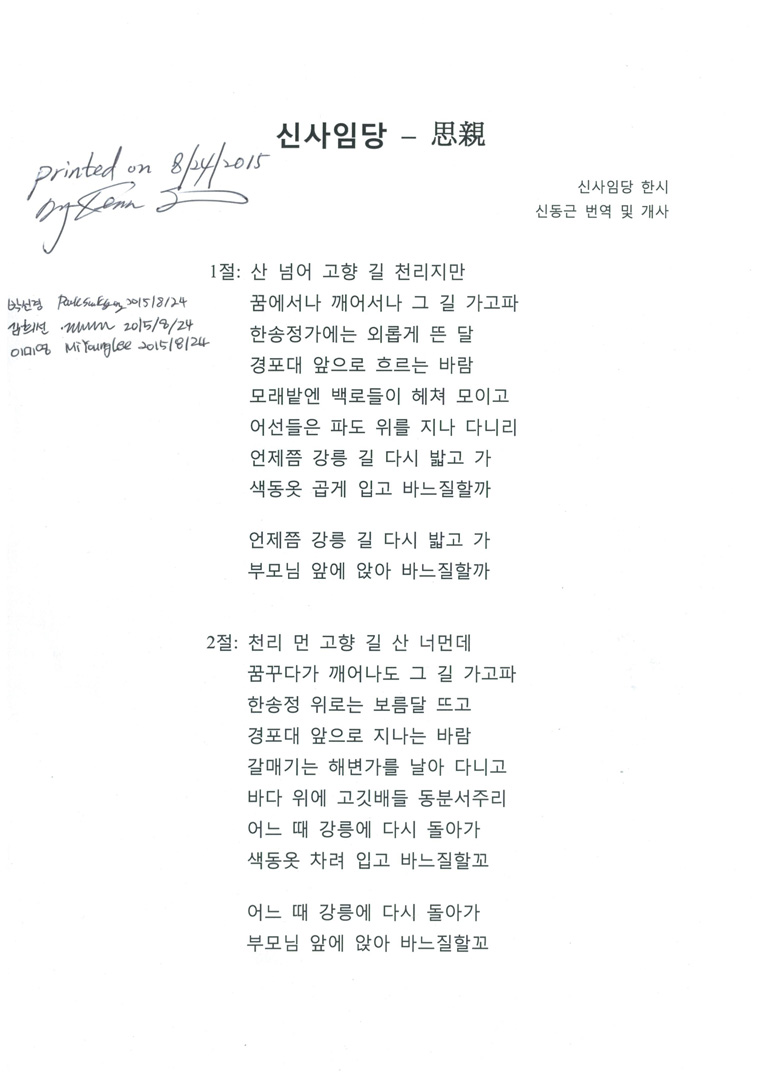 신사임당 – 思親
printed on 8/24/2015
by
신사임당 한시
신동근 번역 및 개사
박선경 2015/8/24
김희선 2015/8/24
이미영 Mi Young Lee 2015/8/24
1절: 산 넘어 고향 길 천리지만
꿈에서나 깨어서나 그 길 가고파
한송정가에는 외롭게 뜬 달
경포대 앞으로 흐르는 바람
모래밭엔 백로들이 헤쳐 모이고
어선들은 파도 위를 지나 다니리
언제쯤 강릉 길 다시 밟고 가
색동옷 곱게 입고 바느질할까
언제쯤 강릉 길 다시 밟고 가
부모님 앞에 앉아 바느질할까
2절: 천리 먼 고향 길 산 너먼데
꿈꾸다가 깨어나도 그 길 가고파
한송정 위로는 보름달 뜨고
경포대 앞으로 지나는 바람
갈매기는 해변가를 날아 다니고
바다 위에 고깃배들 동분서주리
어느 때 강릉에 다시 돌아가
색동옷 차려 입고 바느질할꼬
어느 때 강릉에 다시 돌아가
부모님 앞에 앉아 바느질할꼬